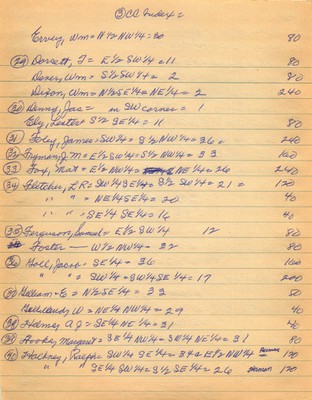 ③ CC Index =
Ervey, Wm = N½ NW¼ = 20 80
(29) Dorsett, J = E½ SW¼ = 11 80
Deser, Wm = S½ SW¼ = 2 80
Dixon, Wm = N½ SE¼ = NE¼ = 2 240
(30) Denny, Jas = in SW corner = 1
Ely, Lester S½ SE¼ = 11 80
(31) Foley, James = SW¼ = S½ NW¼ = 36 = 240
(32) Fryman, J M = E½ SW¼ = S½ NW¼ = 33 160
(33) Fox, Mat = E½ NW¼ = NE¼ = 26 240
(34) Fletcher, L R = SW¼ SE¼ = S½ SW¼ = 21 = 120
" " = NE¼ SE¼ = 20 40
" " = SE¼ SE¼ = 16 40
(35) Ferguson, Samuel = E½ SW¼ 12 80
Foster — W½ NW¼ = 32 80
(36) Holl, Jacob = SE¼ = 36 160
" " = SW¼ = SW¼ SE¼ = 17 200
(37) William = E = N½ SE¼ = 33 80
W = NE¼ NW¼ = 29 40
(38) Holmes A J = SE¼ NE¼ = 31 40
(39) Hooke, Margaret = SE¼ NW¼ = SW¼ NE¼ = 31 80
(40) Halkney, Ralph = SW¼ SE¼ = 34 = E½ NW¼ 120
" " SE¼ SW¼ = S½ SE¼ = 26 120